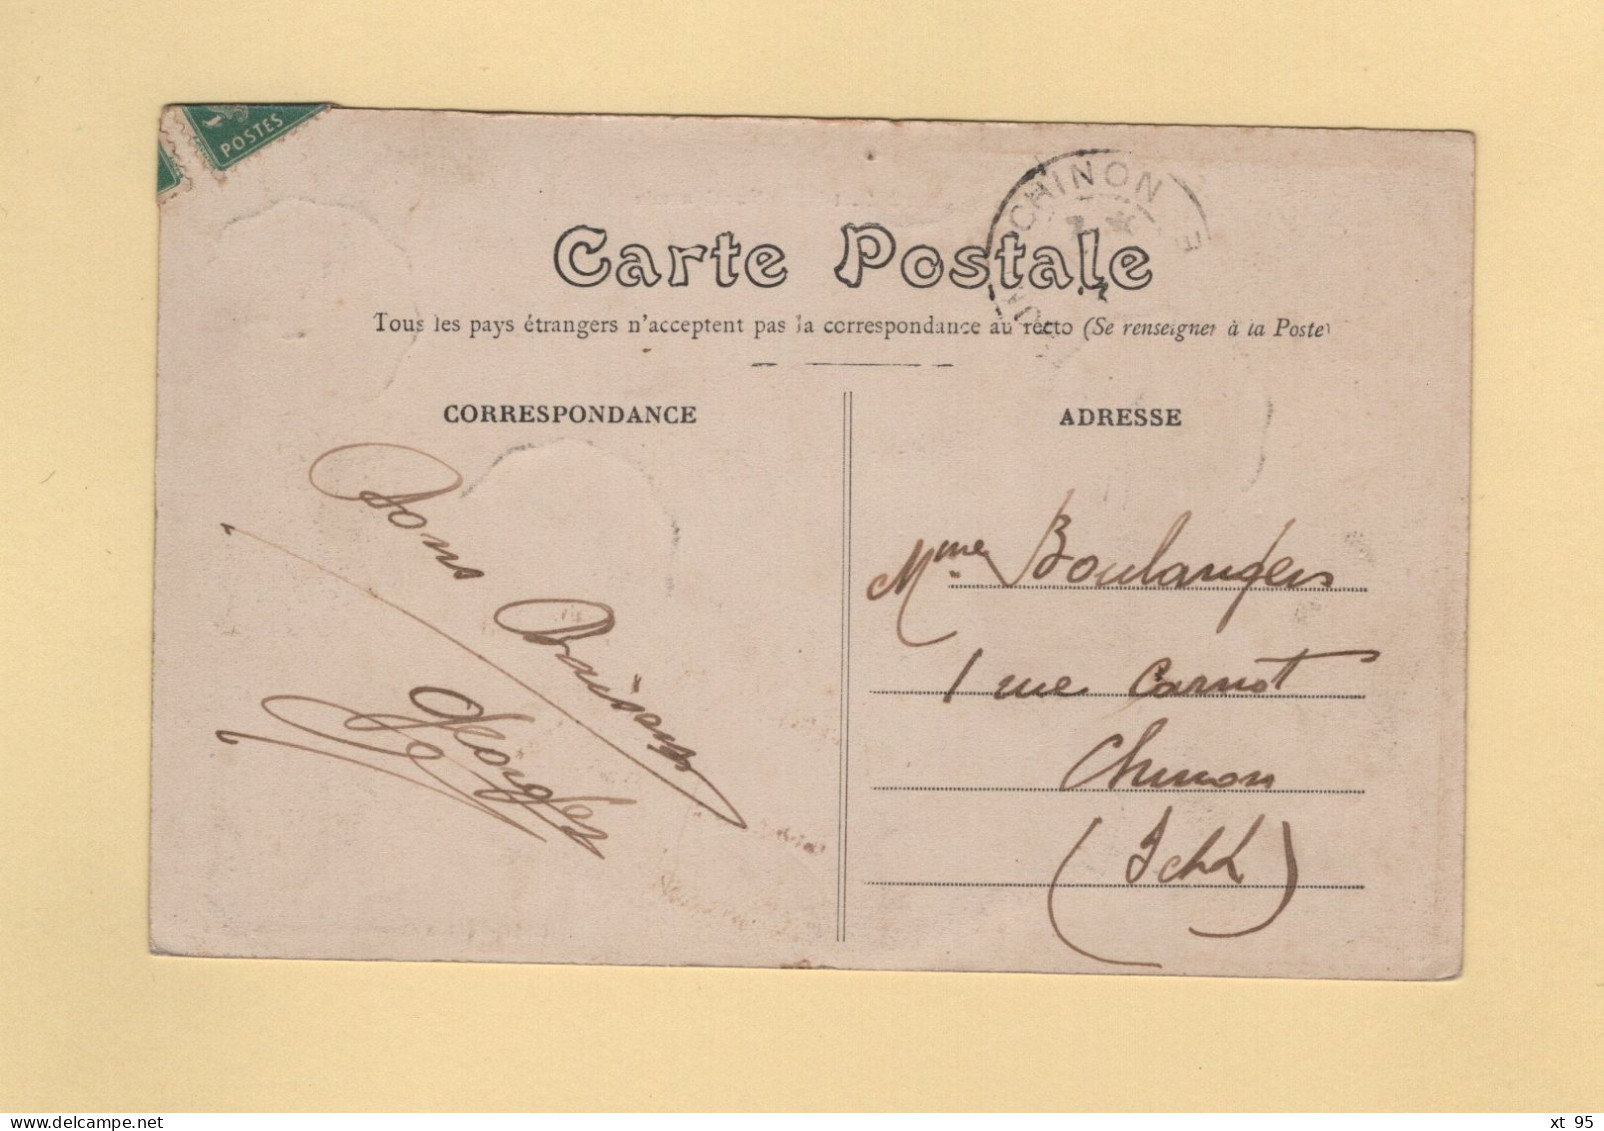 POSTES
CHINON
Carte Postale
Tous les pays étrangers n'acceptent pas la correspondance au recto (Se renseigner à la Poste)
CORRESPONDANCE
ADRESSE
Bons Baisers
Georges
Mme Boulangers
1 rue Carnot
Chinon
xt 95